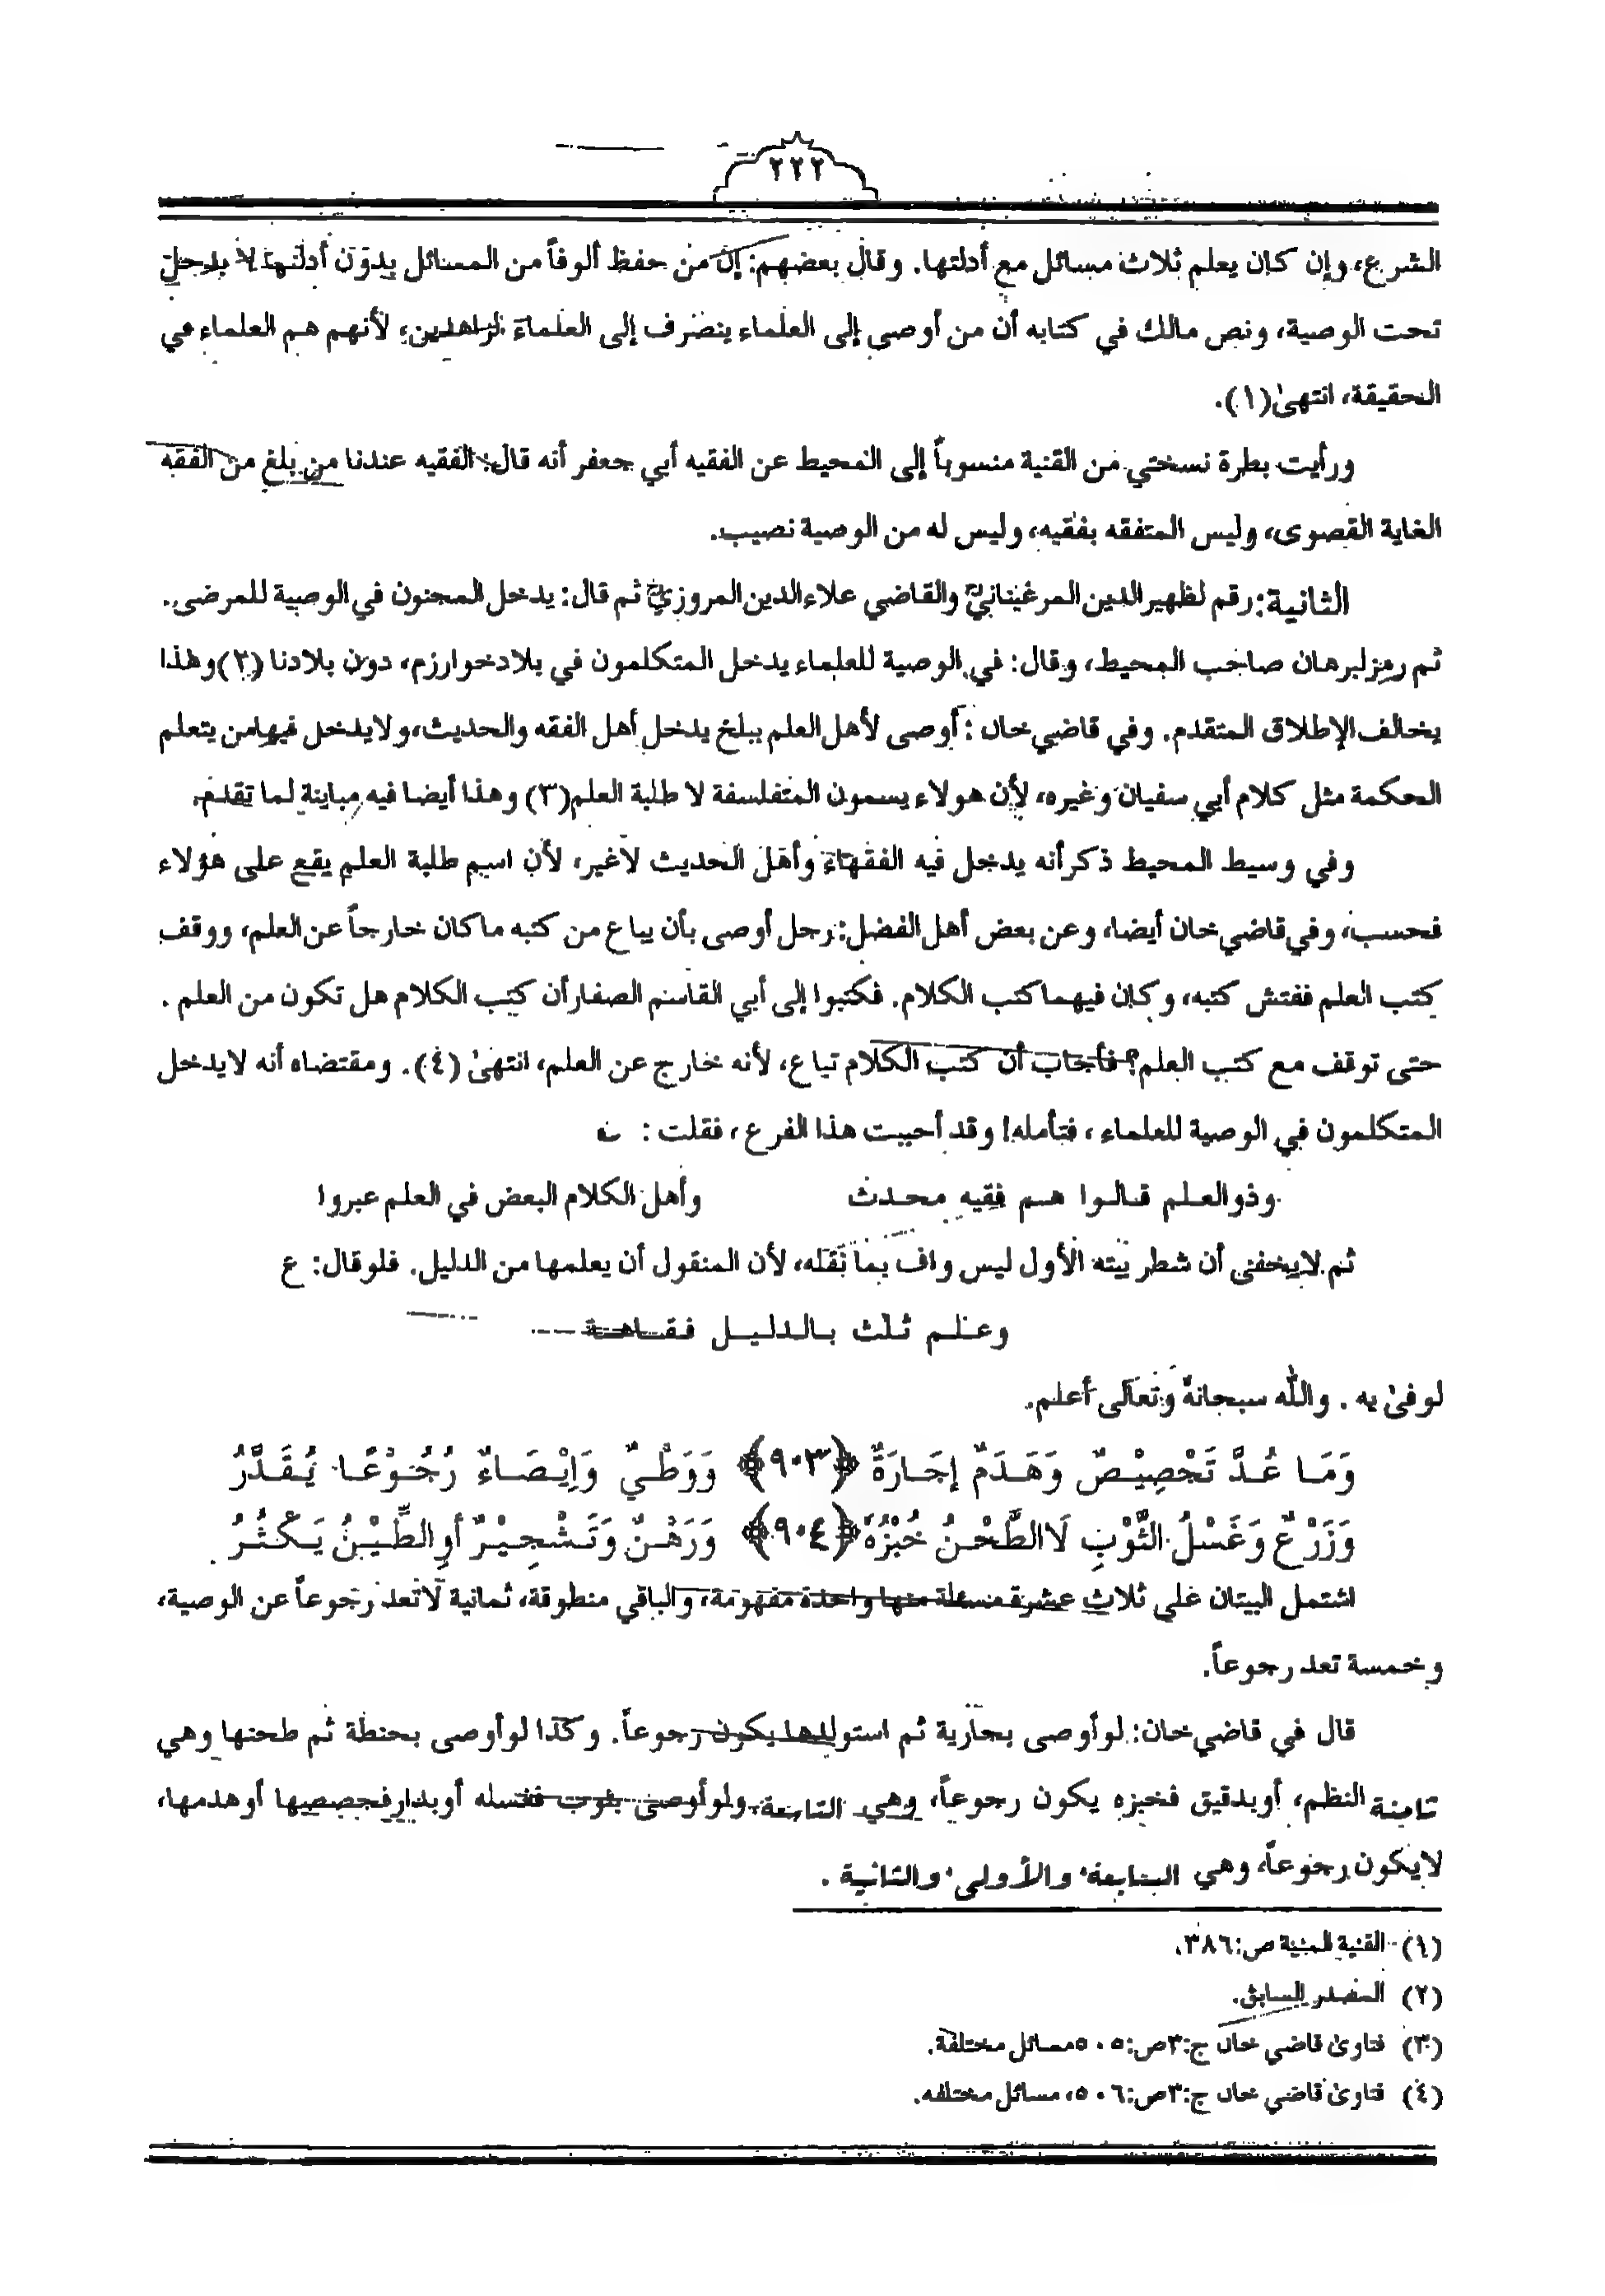 ٢٢٢
الشرع، وإن كان يعلم ثلاث مسائل مع أدلتها. وقال بعضهم: إن من حفظ ألوفاً من المسائل بدون أدلتها لا يدخل
تحت الوصية، ونص مالك في كتابه أن من أوصى إلى العلماء ينصرف إلى العلماء الزاهدين، لأنهم هم العلماء في
الحقيقة، انتهىٰ(١).
ورأيت بطرة نسختي من القنية منسوباً إلى المحيط عن الفقيه أبي جعفر أنه قال: الفقيه عندنا من بلغ من الفقه
الغاية القصوى، وليس المتفقه بفقيه، وليس له من الوصية نصيب.
الثانية: رقم لظهير الدين المرغيناني والقاضي علاء الدين المروزي ثم قال: يدخل المجنون في الوصية للمرضى.
ثم رمز لبرهان صاحب المحيط، وقال: في الوصية للعلماء يدخل المتكلمون في بلاد خوارزم، دون بلادنا (٢) وهذا
يخالف الإطلاق المتقدم. وفي قاضي خان: أوصى لأهل العلم ببلخ يدخل أهل الفقه والحديث، ولا يدخل فيها من يتعلم
الحكمة مثل كلام أبي سفيان وغيره، لأن هولاء يسمون المتفلسفة لا طلبة العلم(٣) وهذا أيضا فيه مباينة لما تقدم.
وفي وسيط المحيط ذكر أنه يدخل فيه الفقهاء وأهل الحديث لاغير، لأن اسم طلبة العلم يقع على هؤلاء
فحسب، وفي قاضي خان أيضا، وعن بعض أهل الفضل: رجل أوصى بأن يباع من كتبه ما كان خارجاً عن العلم، ووقف
كتب العلم ففتش كتبه، وكان فيهما كتب الكلام. فكتبوا إلى أبي القاسم الصفار أن كتب الكلام هل تكون من العلم .
حتى توقف مع كتب العلم؟ فأجاب أن كتب الكلام تباع، لأنه خارج عن العلم، انتهىٰ (٤). ومقتضاه أنه لا يدخل
المتكلمون في الوصية للعلماء، فتأمله! وقد أحببت هذا الفرع، فقلت:
وذو العلم قالوا هم فقيه محدث وأهل الكلام البعض في العلم عبروا
ثم لا يخفى أن شطر بيته الأول ليس واف بما نقله، لأن المنقول أن يعلمها من الدليل. فلو قال: ع
وعلم ثلث بالدليل فقاهة
لوفىٰ به . والله سبحانه وتعالى أعلم.
وَمَا عُدَّ تَجْصِيْصٌ وَهَدَمٌ إجَارَةٌ ﴿٩٠٣﴾ وَوَطْيٌ وَاِيْصَاءٌ رُجُوْعًا يُقَدَّرُ
وَزَرْعٌ وَغَسْلُ الثَّوْبِ لَا الطَّحْنُ خُبْزُهٗ ﴿٩٠٤﴾ وَرَهْنٌ وَتَشْجِيْرٌ أوِ الطِّيْنُ يَكْثُرُ
اشتمل البيتان على ثلاث عشرة مسئلة منها واحدة مفهومة، والباقي منطوقة، ثمانية لا تعد رجوعاً عن الوصية،
وخمسة تعد رجوعاً.
قال في قاضي خان: لو أوصى بجارية ثم استولدها يكون رجوعاً. وكذا لو أوصى بحنطة ثم طحنها وهي
ثامنة النظم، أو بدقيق فخبزه يكون رجوعاً، وهي التاسعة، ولو أوصى بثوب فغسله أو بدار فجصصها أو هدمها،
لا يكون رجوعاً، وهي السابعة، والأولى، والثانية .
(١) القنية المنية ص:٣٨٦.
(٢) المصدر السابق.
(٣) فتاوىٰ قاضي خان ج:٣ص:٥٠٥ مسائل مختلفة.
(٤) فتاوىٰ قاضي خان ج:٣ص:٥٠٦، مسائل مختلفه.